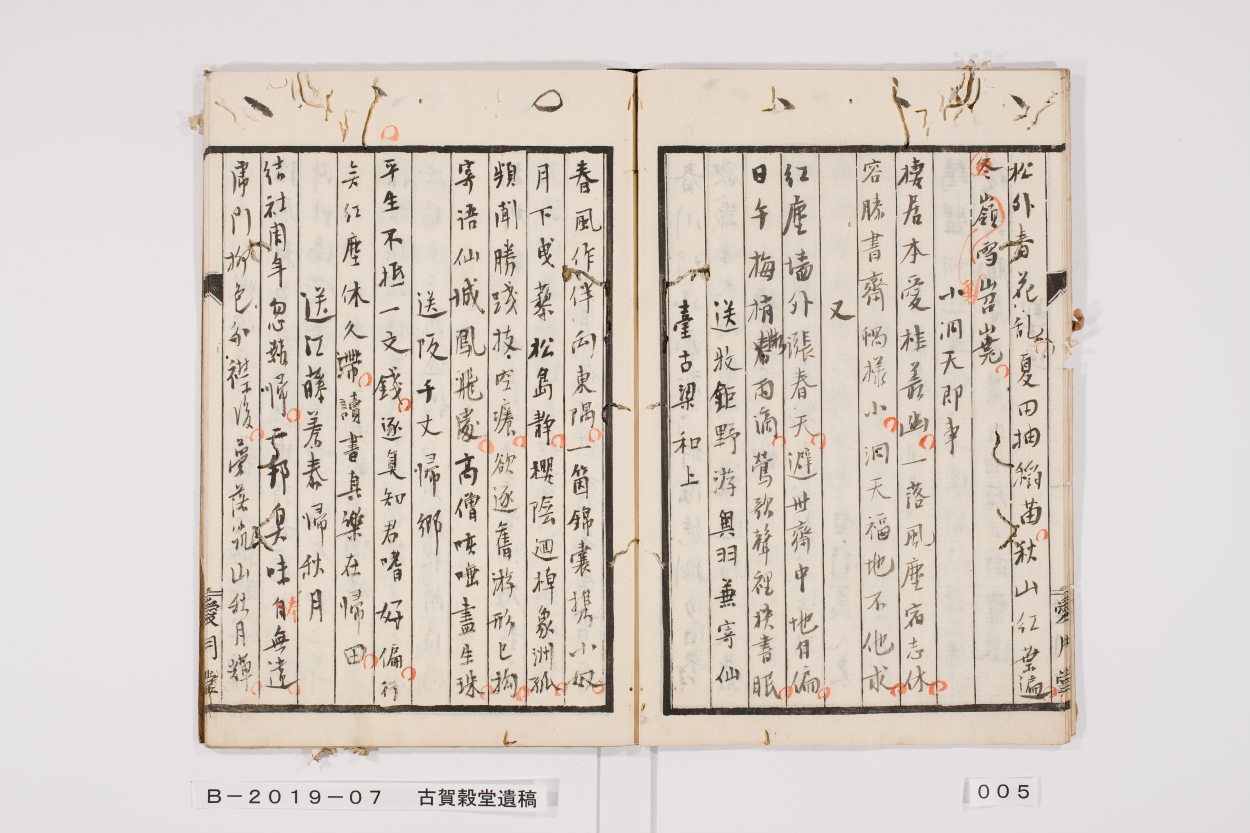 松外春花乱夏田抽稲苗秋山紅葉遍
冬嶺雪岧嶤
小洞天即事
棲居本愛桂叢幽一落風塵宿志休
容膝書齋蝸様小洞天福地不他求
又
紅塵墻外漲春天避世齋中地自偏
日午梅梢雨滴鶯歌聲裡枕書眠
送牧鉅野游奥羽兼寄仙
臺古梁和上
春風作伴向東隅一箇錦嚢携小奴
月下曳藜松島静櫻陰廻棹象洲孤
頻聞勝踐技空癢欲逐舊游形已拘
寄語仙城鳳飛處高僧咳唾盡生珠
送阪千丈歸郷
平生不抵一文錢逐臭知君嗜好偏
紅塵休久滯讀書真樂在歸田
送江藤養泰歸秋月
結社周年忽話歸吾邦臭味自無違
虎門柳色分襟後夢落山秋月輝
愛月堂
愛月堂
B－2019－07　古賀穀堂遺稿
005